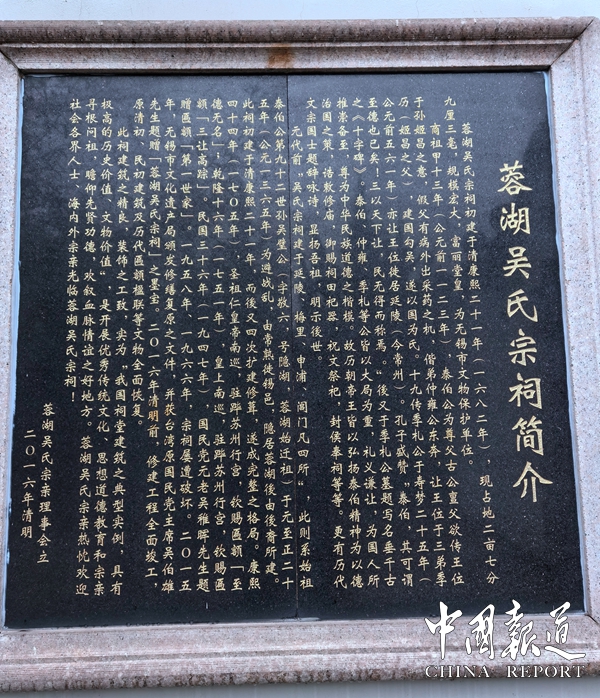 蓉湖吴氏宗祠简介
蓉湖吴氏宗祠初建于清康熙二十一年（一六八二年），现占地二亩七分
九厘三毫，规模宏大，富丽堂皇，为无锡市文物保护单位。
商祖甲十三年（公元前一一二三年），泰伯公为尊父古公亶父欲传王位
于孙姬昌之意，假父有病外出采药之机，偕弟仲雍公东奔，让王位于三弟季
历（姬昌之父），建国勾吴，遂以国为氏。十九传季札公于寿梦二十五年（
公元前五六一年）亦让王位徙居延陵（今常州）。孔子盛赞“泰伯，其可谓
至德也已矣！三以天下让，民无得而称焉。”後又于季札公墓题写名垂千古
之《十字碑》。泰伯、仲雍、季札等公皆以大局为重，礼义谦让，为国人所
推崇备至，尊为中华民族道德之楷模。故历朝帝王皆以弘扬泰伯精神为以德
治国之策，诰敕修庙，御赐祠田祀器，祝文祭祀，封侯奉祠等等。更有历代
文宗国士题辞咏诗，显扬吾祖，明示後世。
元代前，“吴氏宗祠建于延陵、梅里、申浦、阊门凡四所”，此则系始祖
泰伯公第九十二世孙吴璧公（字敬六，号隐湖，蓉湖始迁祖）于元至正二十
五年（公元一三六五年）为避战乱，由常熟徙锡邑，隐居蓉湖後由後裔所建。
此祠初建于清康熙二十一年，而後又四次扩建修葺，遂成完整之格局。康熙
四十四年（一七〇五年），圣祖仁皇帝南巡，驻跸苏州行宫，钦赐匾额「至
德无名」，乾隆十六年（一七五一年），皇上南巡，驻跸苏州行宫，钦赐匾
额「三让高踪」。民国三十六年（一九四七年），国民党元老吴稚晖先生题
赠匾额「第一世家」。一九五八年、一九六六年，宗祠屡遭破坏。二〇一五
年，无锡市文化遗产局颁发修缮复原之文件，并获台湾原国民党主席吴伯雄
先生题赠「蓉湖吴氏宗祠」之墨宝。二〇一六年清明前，修建工程全面竣工，
原清初、民初建筑及历代匾额楹联等文物全面恢复。
此祠建筑之精良，装饰之工致，实为“我国祠堂建筑之典型实例，具有
极高的历史价值、文物价值”，是开展优秀传统文化、思想道德教育和宗亲
寻根问祖，瞻仰先贤功德，欢叙血脉情谊之好地方。蓉湖吴氏宗亲热忱欢迎
社会各界人士、海内外宗亲光临蓉湖吴氏宗祠！
蓉湖吴氏宗亲理事会立
二〇一六年清明
中國報道
CHINA REPORT